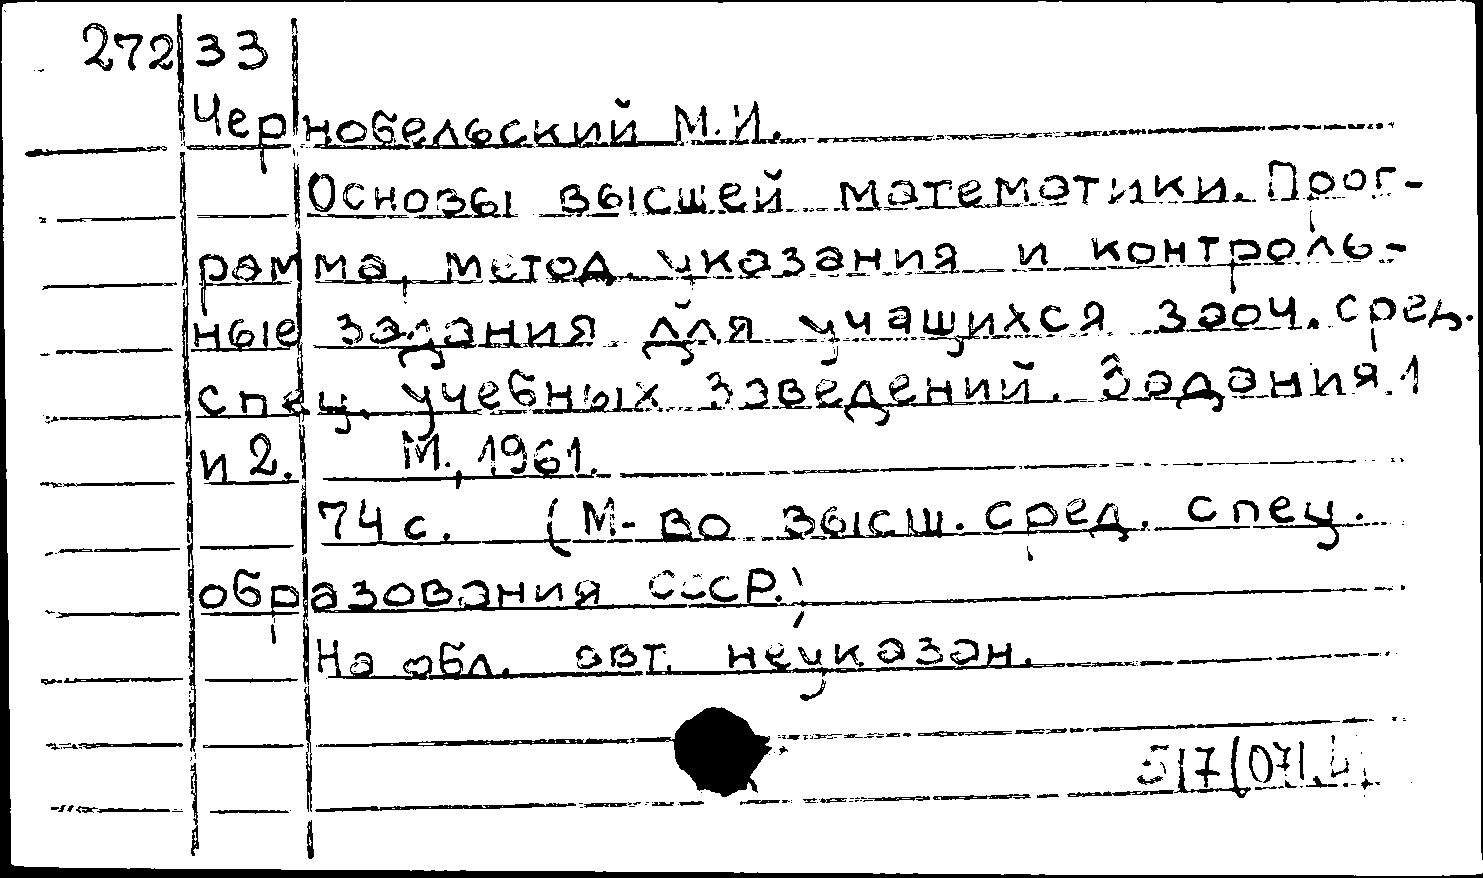 27233
Чернобельский М.И.
Основы высшей математики. Прог-
рамма, метод. указания и контроль-
ные задания для учащихся заоч. сред.
спец. учебных заведений. Задания 1
и 2. М., 1961.
74 с. (М-во высш. сред. спец.
образования СССР.)
На обл. авт. не указан.
517(071.4)